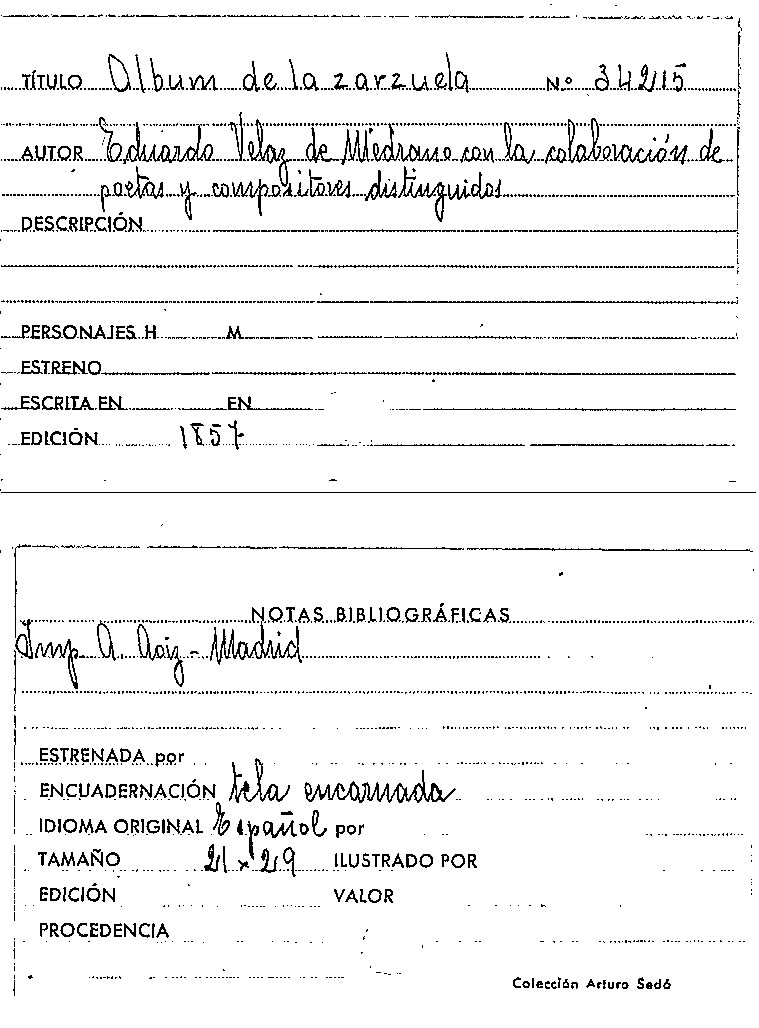 TÍTULO Album de la zarzuela Nº 34215
AUTOR Eduardo Velaz de Medrano con la colaboración de
poetas y compositores distinguidos
DESCRIPCIÓN
PERSONAJES H M
ESTRENO
ESCRITA EN EN
EDICIÓN 1857
NOTAS BIBLIOGRÁFICAS
Imp A. Aoiz - Madrid
ESTRENADA por
ENCUADERNACIÓN tela encarnada
IDIOMA ORIGINAL Español por
TAMAÑO 21 x 29 ILUSTRADO POR
EDICIÓN VALOR
PROCEDENCIA
Colección Arturo Sedó